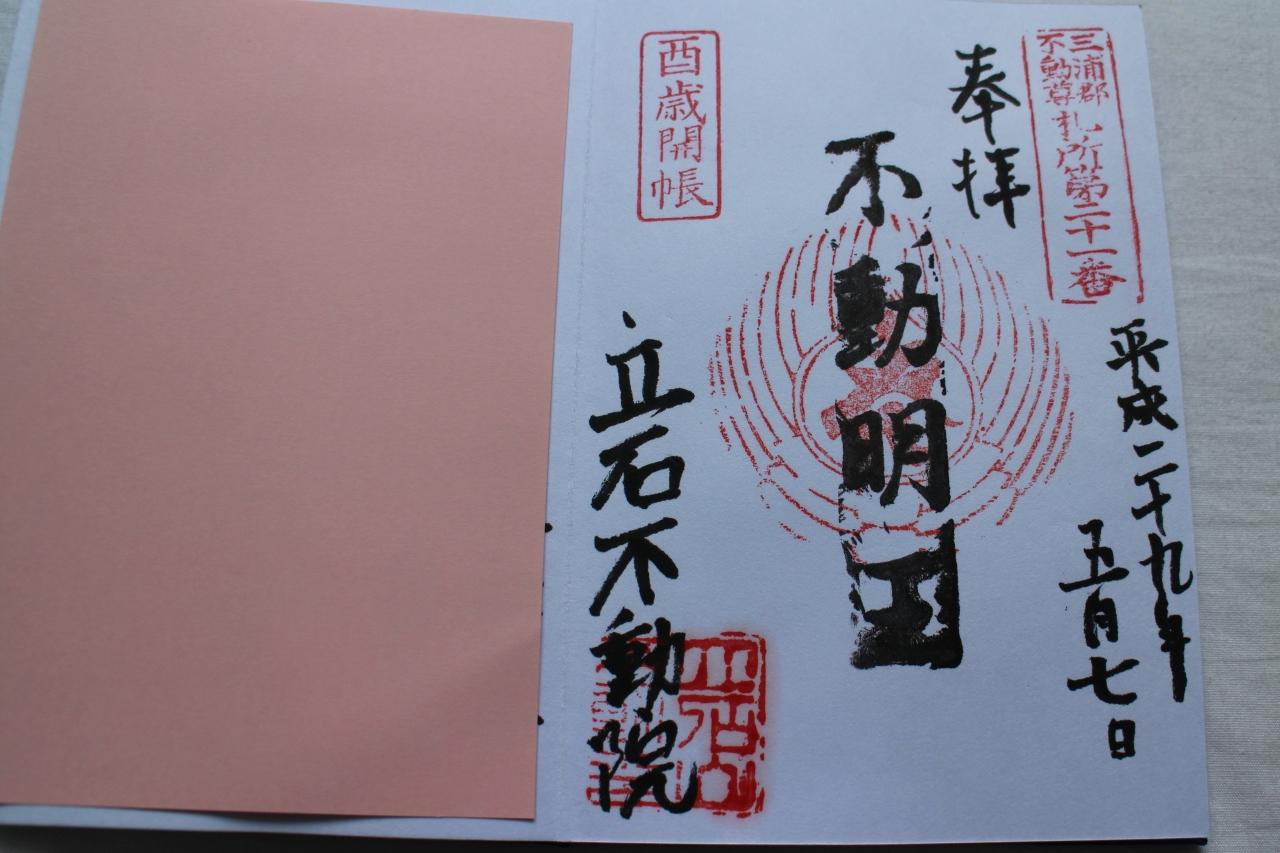 三浦郡
不動尊
札所第二十一番
平成二十九年
五月七日
奉拝
不動明王
酉歳開帳
立石不動院